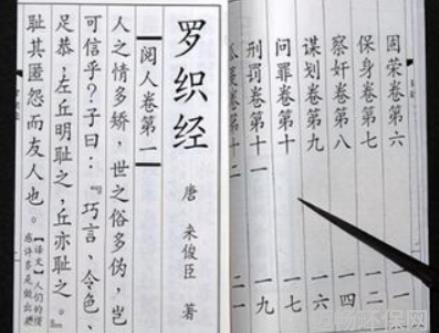 固荣卷第六 一一
保身卷第七 一二
察奸卷第八 一四
谋划卷第九 一六
问罪卷第十 一七
刑罚卷第十一 一九
卷第十二
罗织经
唐 来俊臣 著
阅人卷第一
人之情多矫，世之俗多伪，岂
可信乎？子曰：『巧言、令色、
足恭，左丘明耻之，丘亦耻之。』
耻其匿怨而友人也。
【译文】人们的情